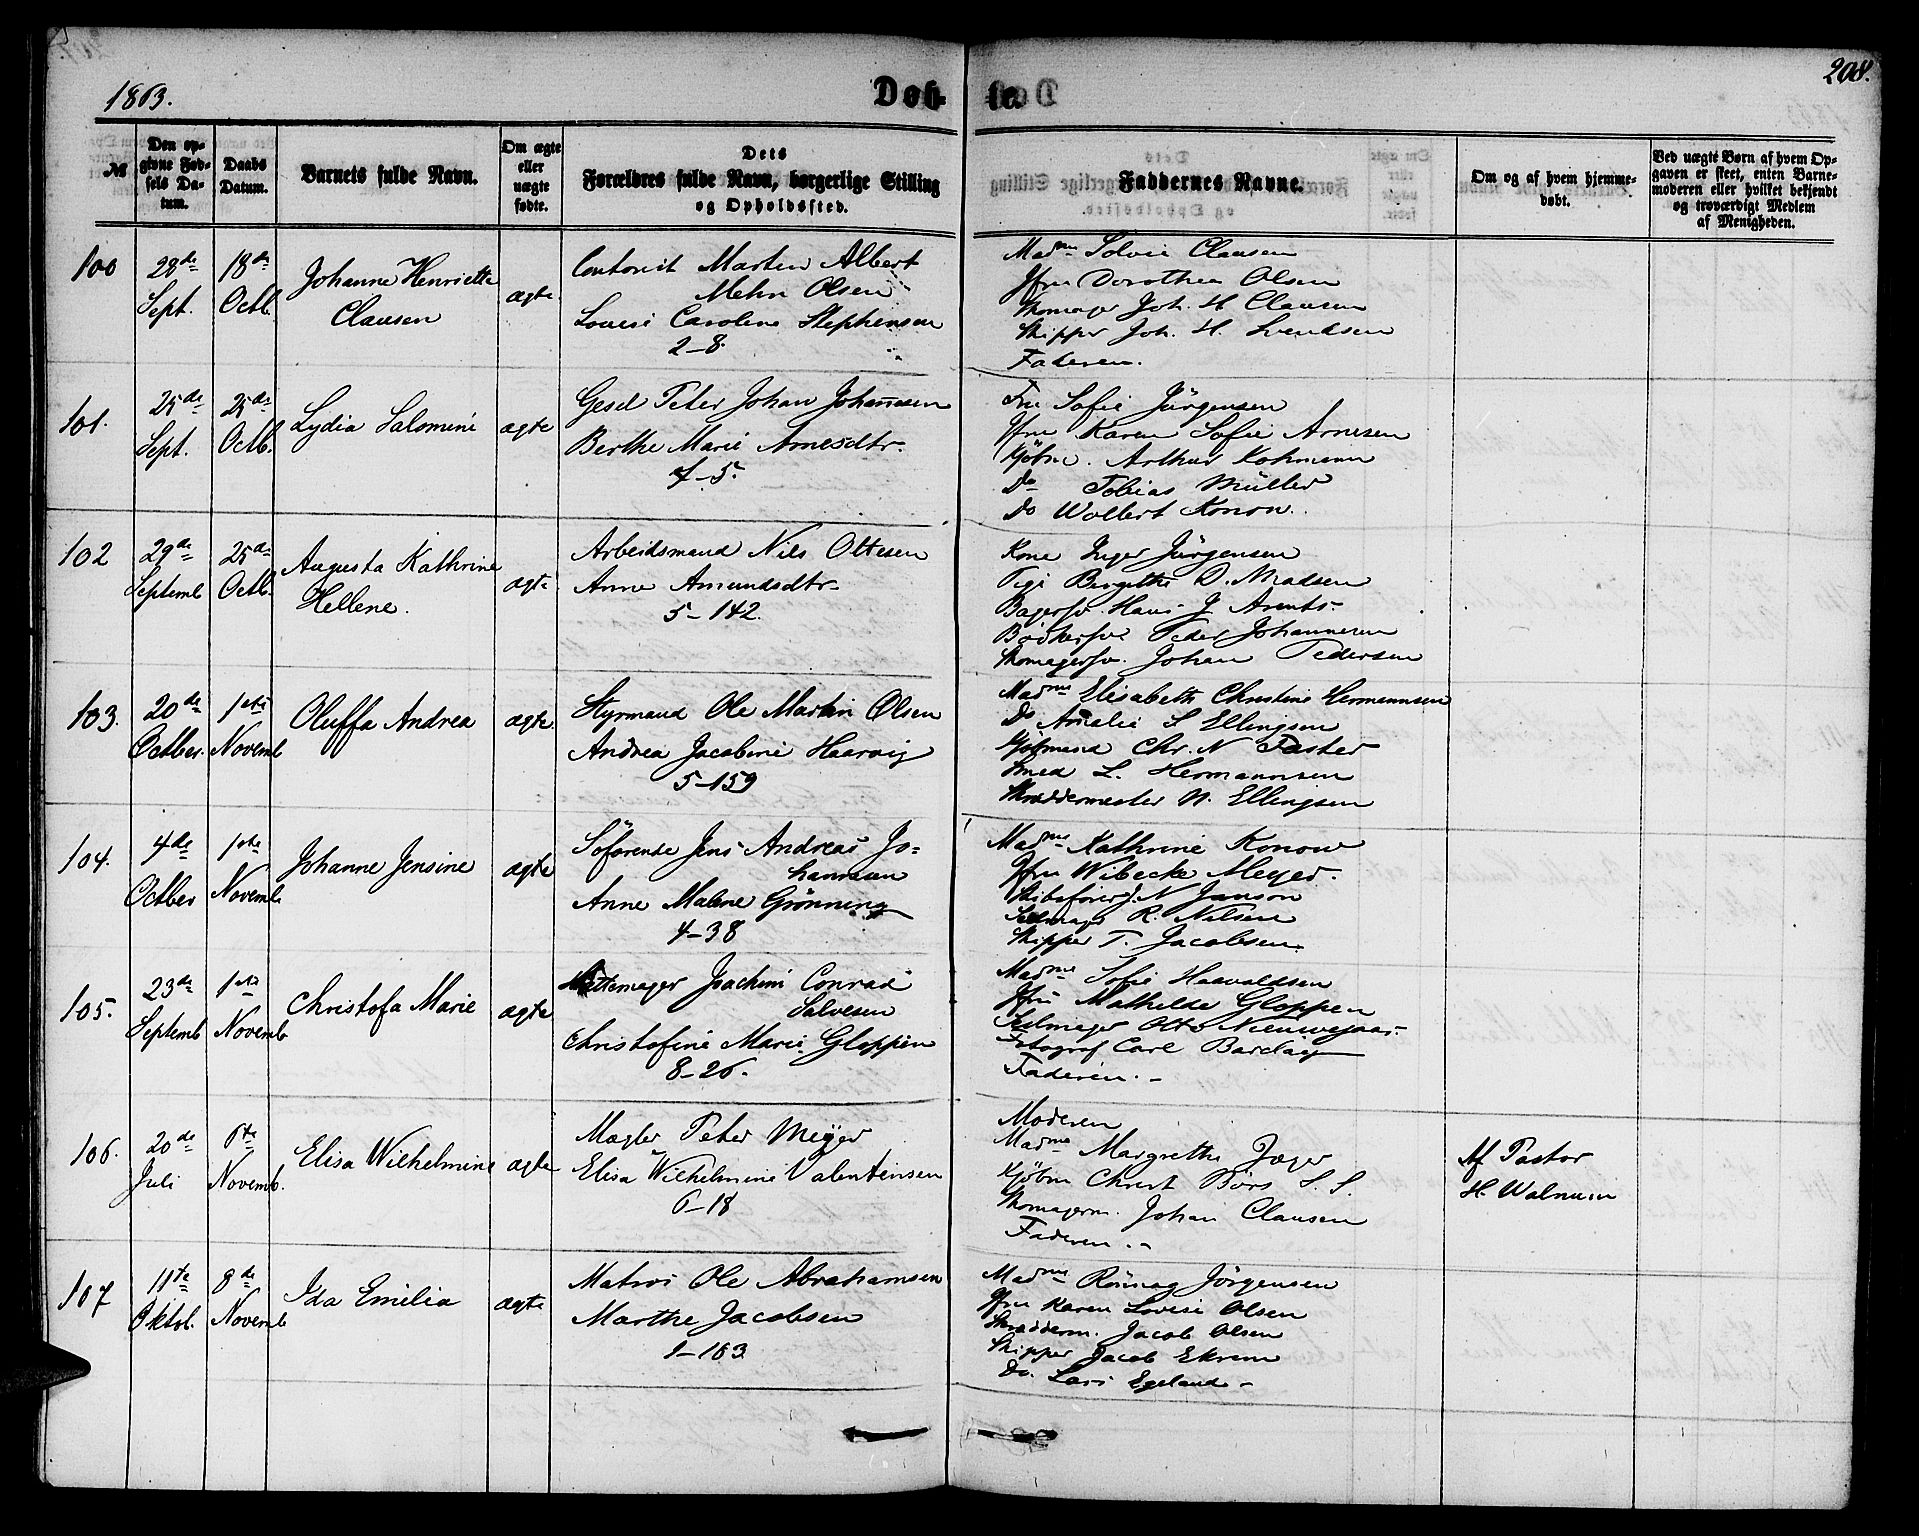 1863.
Døb-
te.
208.
№
Den op-
givne Fød-
sels Da-
tum.
Daabs
Datum.
Barnets fulde Navn.
Om ægte
eller
uægte
fødte.
Dets
Forældres fulde Navn, borgerlige Stilling
og Opholdssted.
Faddernes Navne.
Om og af hvem hjemme-
døbt.
Ved uægte Børn af hvem Op-
gaven er skeet, enten Barne-
moderen eller hvilket bekjendt
og troværdigt Medlem
af Menigheden.
100
28de
Sept.
18de
Octb.
Johanne Henriette
Clausen
ægte
Contorist Martin Albert
Mehn Olsen
Lovise Caroline Stephensen
2-8.
Madme Solvie Clausen
Jfru Dorothea Olsen
Skomager Joh. H Clausen
Skipper Joh. H. Svendsen
Faderen.
101.
25de
Sept.
25de
Octb.
Lydia Salomine
ægte
Gesel Peter Johan Johannesen
Berthe Marie Arnesdtr.
4-5.
Fru Sofie Jürgensen
Jfru Karen Sofie Arnesen
Kjöbm. Arthur Kohmann
Do Tobias Müller
Do Wollert Konow.
102
29de
Septemb
25de
Octb.
Augusta Kathrine
Hellene.
ægte
Arbeidsmand Nils Ottesen
Anne Amundsdtr
5-142.
Kone Inger Jürgensen
Pige Birgitte D. Madsen
Bagersv. Hans J Arents
Bödkersv. Peder Johannesen
Skomagersv. Johan Pedersen
103.
20de
Octber.
1ste
Novemb
Oluffa Andrea
ægte.
Styrmand Ole Martin Olsen
Andrea Jacobine Haarvig
5-159
Madme Elisabeth Christine Hermannsen
Do Amalie S Ellingsen
Kjöbmand Chr. N Faster
Smed L. Hermannsen
Skræddermester N. Ellingsen
104.
4de
Octber
1ste
Novemb.
Johanne Jensine
ægte
Söfarende Jens Andreas Jo-
hannesen
Anne Malene Grønning
4-38
Madme Kathrine Konow
Jfru Wibecke Meyer.
Skibsförer J. N Janson
Seilmager R. Nilsen
Skipper T. Jacobsen
105.
23de
Septemb
1ste
Novemb
Christofa Marie
ægte
Hattemager Joachim Conrad
Salvesen
Christofine Marie Gloppen
8-26.
Madme Sofie Haavaldsen
Jfru Mathilde Gloppen
Seilmager Otto Nieuwejaar
Fotograf Carl Barclay
Faderen.
106.
20de
Juli
6te
Novemb.
Elisa Wilhelmine
ægte
Mægler Peter Meyer
Elisa Wilhelmine Valentinsen
6-18
Moderen
Madme Margrethe Jæger
Kjöbm Christ Börs S. S.
Skomagerm. Johan Clausen
Faderen.
Af Pastor
H. Walnum
107
11te
Oktob.
8de
Novemb
Ida Emilia
ægte
Matros Ole Abrahamsen
Marthe Jacobsen
1-163
Madme Rönnag Jörgensen
Jfru Karen Lovise Olsen
Skrædderm. Jacob Olsen
Skipper Jacob Ekren
Do. Lars Egeland